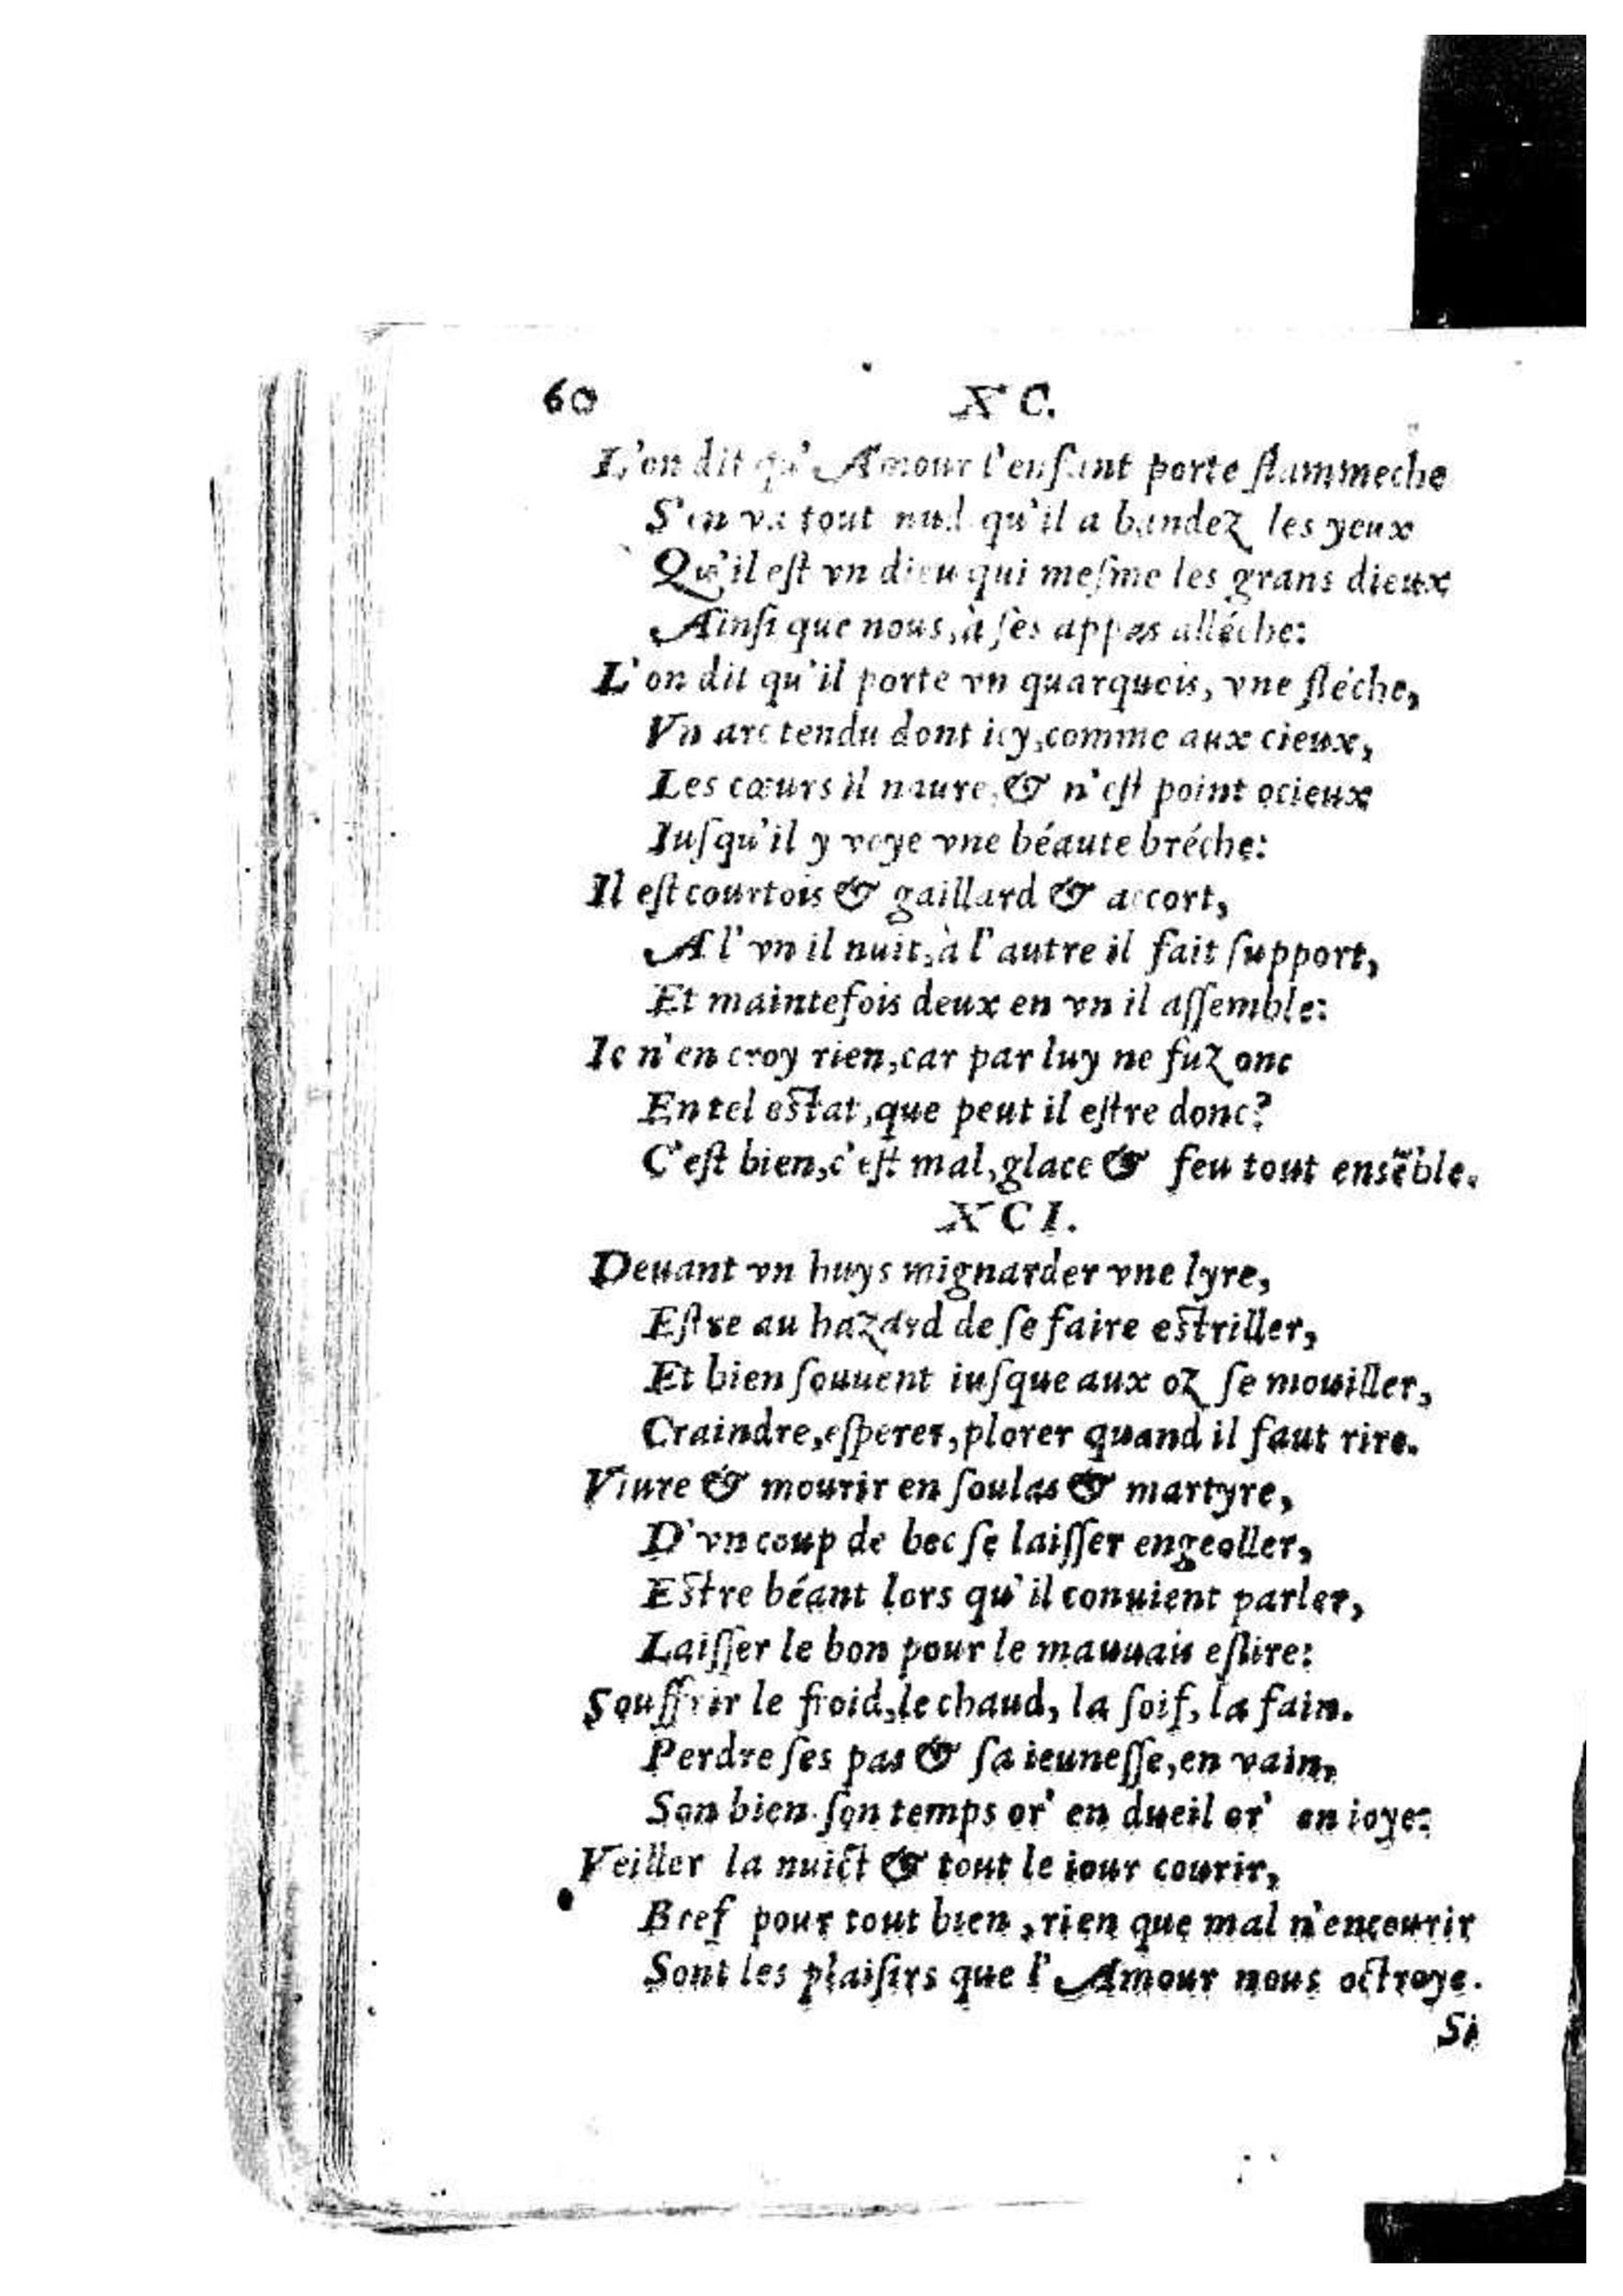 60 XC.
L'on dit qu'Amour l'enfant porte flammeche
S'en va tout nud qu'il a bandez les yeux
Qu'il eſt vn dieu qui meſme les grans dieux
Ainſi que nous, à ſes appas alléche:
L'on dit qu'il porte vn quarquois, vne fléche,
Vn arc tendu dont icy, comme aux cieux,
Les cœurs il naure, & n'eſt point ocieux
Iuſqu'il y voye vne béaute bréche:
Il eſt courtois & gaillard & accort,
A l'vn il nuit, à l'autre il fait ſupport,
Et maintefois deux en vn il aſſemble:
Ie n'en croy rien, car par luy ne fuz onc
En tel eſtat, que peut il eſtre donc?
C'eſt bien, c'eſt mal, glace & feu tout ensẽble.
XCI.
Deuant vn huys mignarder vne lyre,
Eſtre au hazard de ſe faire eſtriller,
Et bien ſouuent iuſque aux oz ſe mouiller,
Craindre, eſperer, plorer quand il faut rire.
Viure & mourir en ſoulas & martyre,
D'vn coup de bec ſe laiſſer engeoller,
Eſtre béant lors qu'il conuient parler,
Laiſſer le bon pour le mauuais eſlire:
Souffrir le froid, le chaud, la ſoif, la fain.
Perdre ſes pas & ſa ieuneſſe, en vain,
Son bien. ſon temps or' en dueil or' en ioye:
Veiller la nuict & tout le iour courir,
Bref pour tout bien, rien que mal n'encourir
Sont les plaiſirs que l'Amour nous octroye.
Si